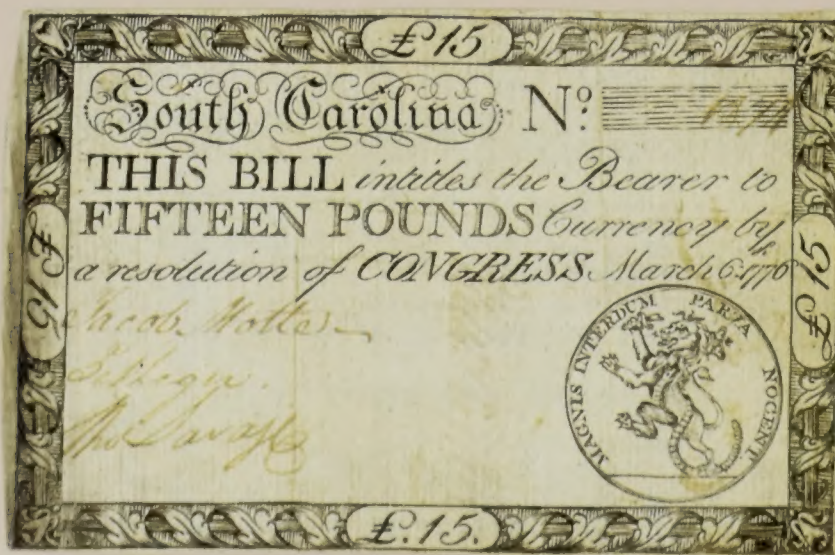 £ 15
South Carolina Nº:
THIS BILL intitles the Bearer to
FIFTEEN POUNDS Currency by
a resolution of CONGRESS March 6.th 1776
£ 15
£ 15
Jacob Motte
Tho Savage
MAGNIS INTERDUM PARVA NOCENT
£.15.